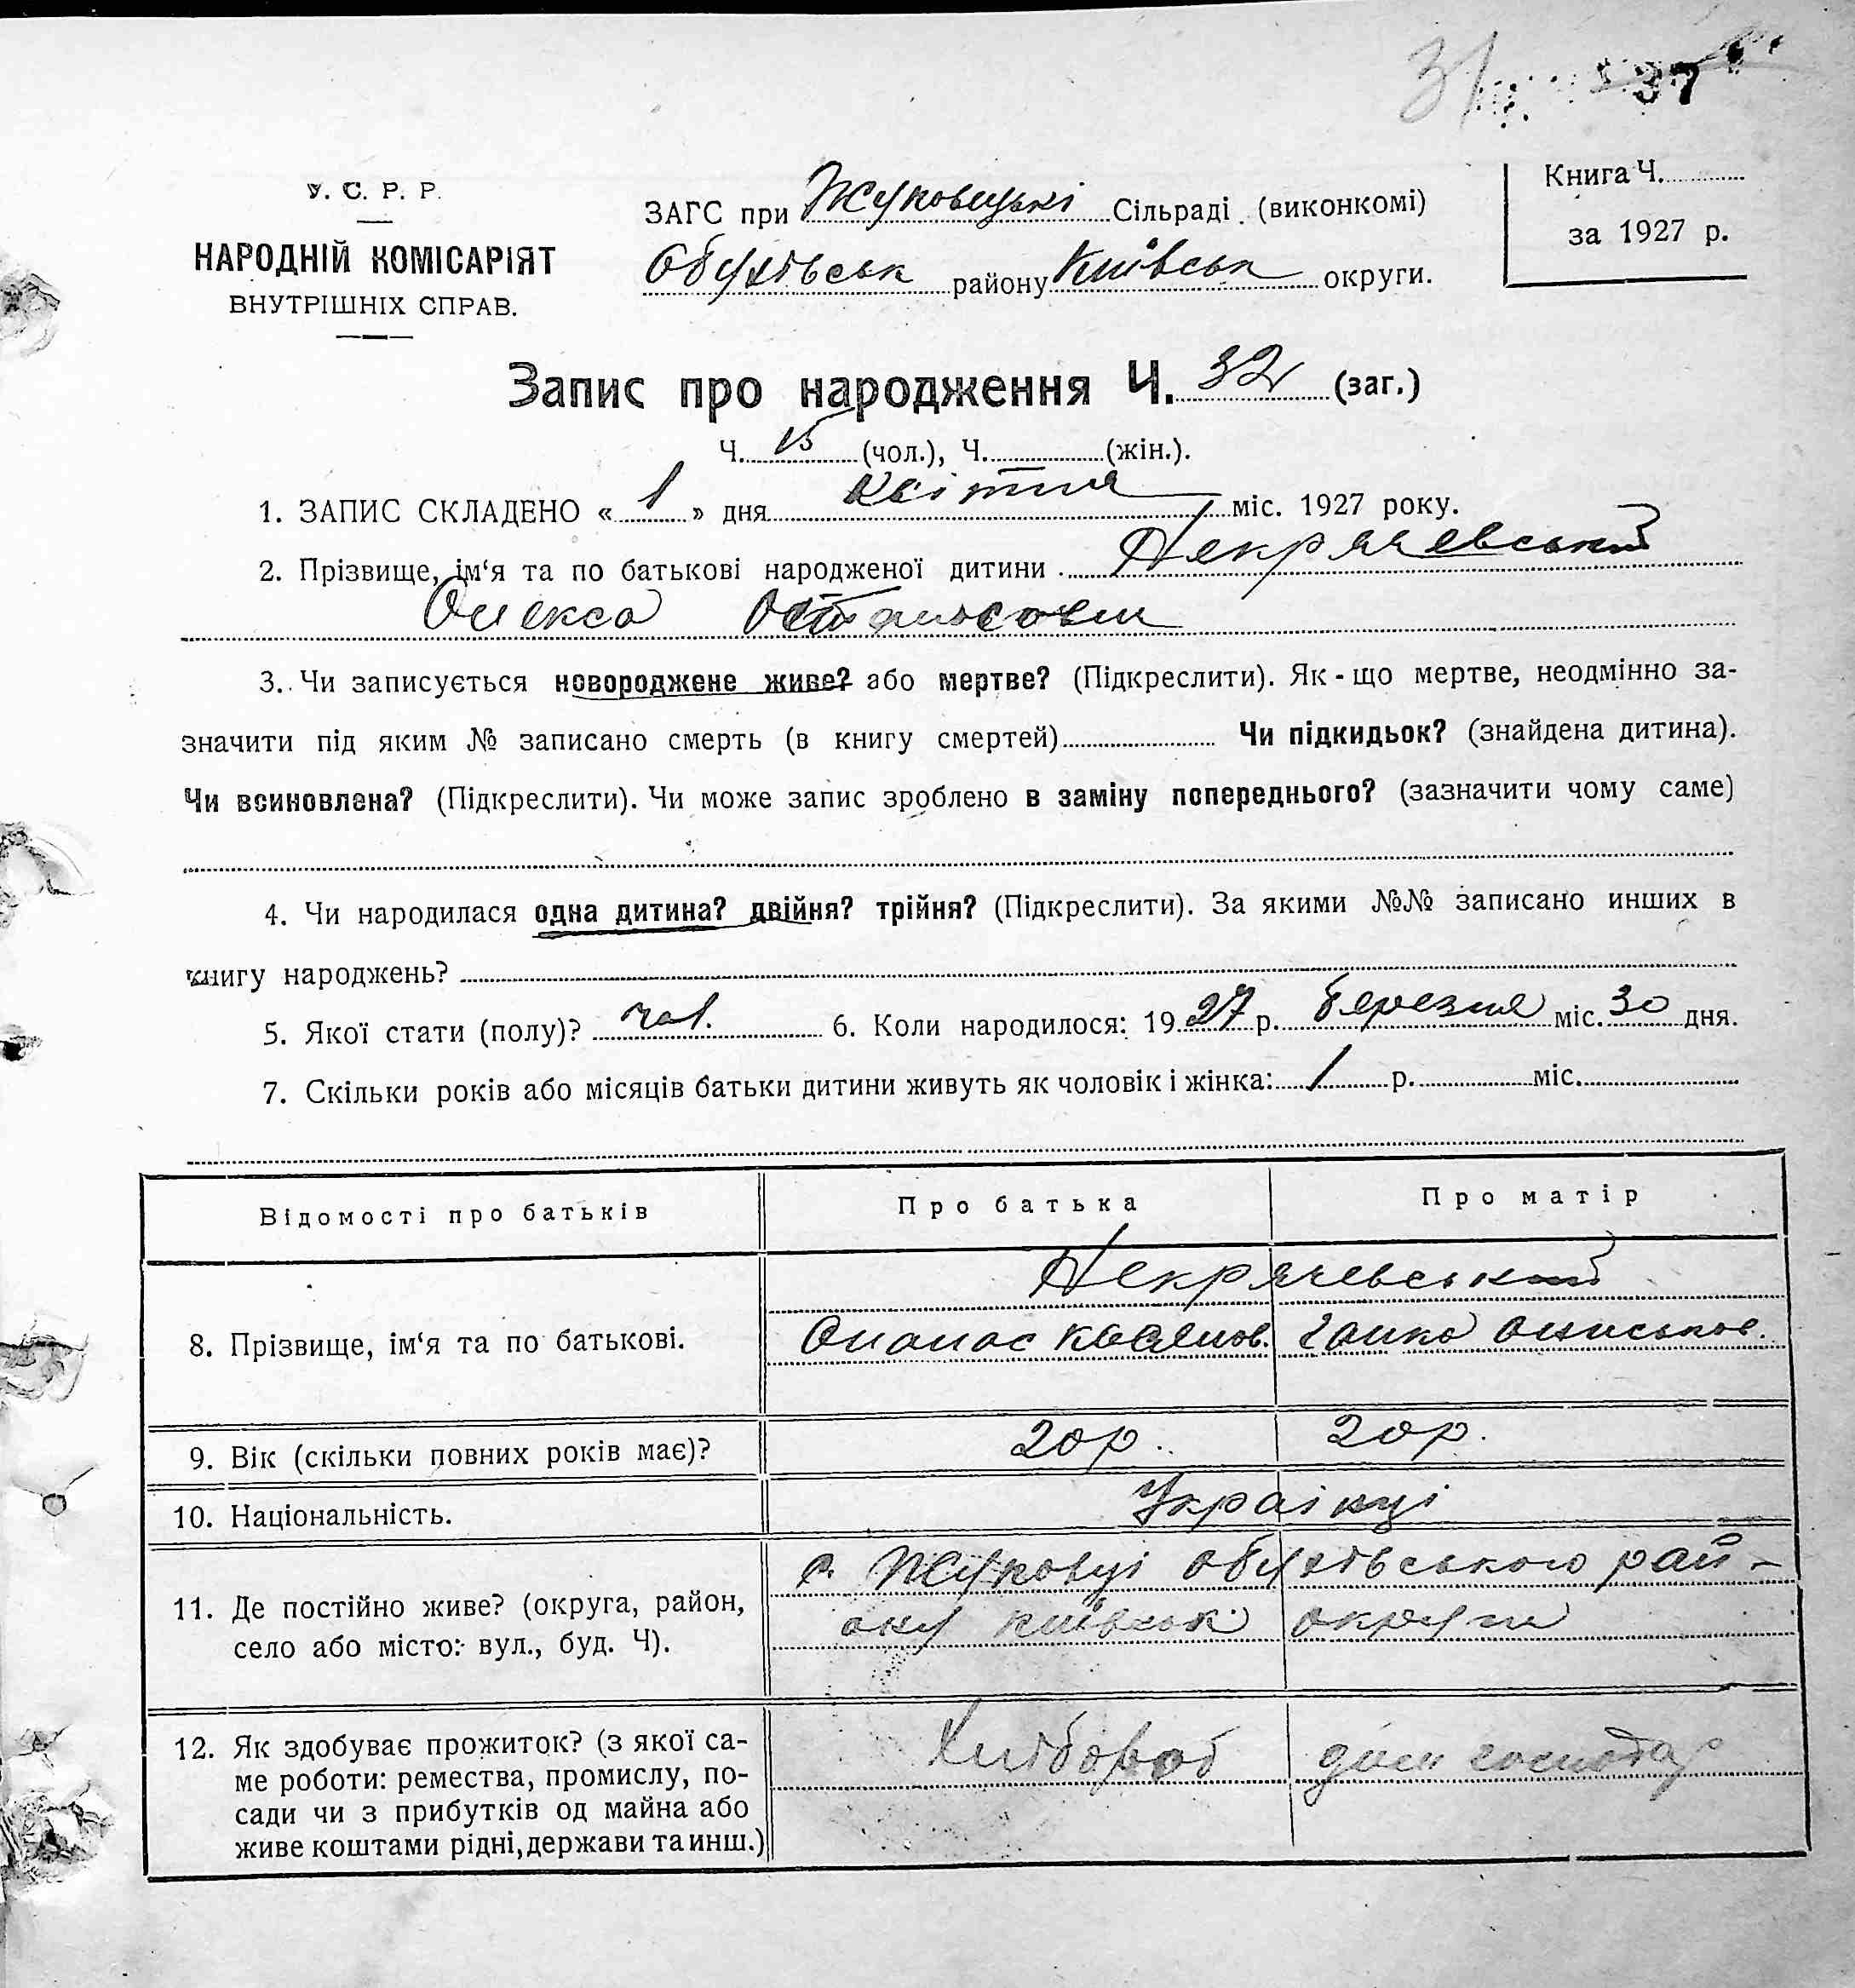 31 37
У. С. Р. Р.
НАРОДНІЙ КОМІСАРІЯТ
ВНУТРІШНІХ СПРАВ.
ЗАГС при Жуковецькі Сільраді (виконкомі)
Обухівськ району Київськ округи.
Книга Ч.
за 1927 р.
Запис про народження Ч. 32 (заг.)
Ч. 15 (чол.), Ч. (жін.).
1. ЗАПИС СКЛАДЕНО « 1 » дня Квітня міс. 1927 року.
2. Прізвище, ім‘я та по батькові народженої дитини Некрячевський
Олекса
3. Чи записується новороджене живе? або мертве? (Підкреслити). Як-що мертве, неодмінно за-
значити під яким № записано смерть (в книгу смертей) Чи підкидьок? (знайдена дитина).
Чи всиновлена? (Підкреслити). Чи може запис зроблено в заміну попереднього? (зазначити чому саме)
4. Чи народилася одна дитина? двійня? трійня? (Підкреслити). За якими №№ записано инших в
книгу народжень?
5. Якої стати (полу)? чол. 6. Коли народилося: 1927 р. березня міс. 30 дня.
7. Скільки років або місяців батьки дитини живуть як чоловік і жінка: 1 р. міс.
Відомості про батьків Про батька Про матір
Некрячевський
8. Прізвище, ім‘я та по батькові. Опанас Касянов. Ганна
9. Вік (скільки повних років має)? 20 р. 20 р.
10. Національність. Українці
11. Де постійно живе? (округа, район,
село або місто: вул., буд. Ч).
с. Жуковці Обухівського рай-
ону Київськ округи
12. Як здобуває прожиток? (з якої са-
ме роботи: ремества, промислу, по-
сади чи з прибутків од майна або
живе коштами рідні, держави та инш.)
Хлібороб дом господар